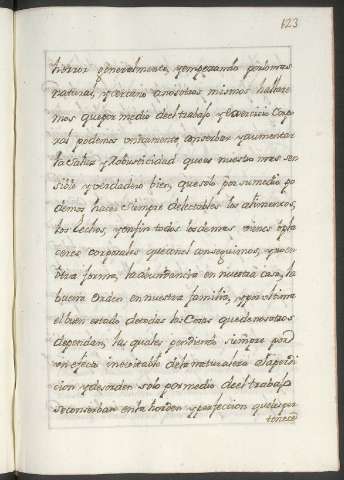 123
honor generalmente, y empezando por lo mas
natural, y cercano anosotros mismos hallare
mos que por medio de el trabajo y exercicio Corpo
ral podemos unicamente, conserbar y aumentar
la Salud y Robusticidad que es nuestro mas sen
sible y verdadero bien, que solo por su medio po
demos hacer siempre delectables los alimentos,
los Lechos, y en fin todos los demas vienes o pla
ceres corporales que en el conseguimos, y por
otra forma, la abundancia en nuestra casa, la
buena orden en nuestra familia, y por ultimo
el buen estado de todas las Cosas que de nosotros
dependan, las quales pendiendo siempre por
un efecto inevitable de la naturaleza a la perdi
cion y desorden solo por medio de el trabajo
se conserban en la horden y perfeccion que les per
tenece